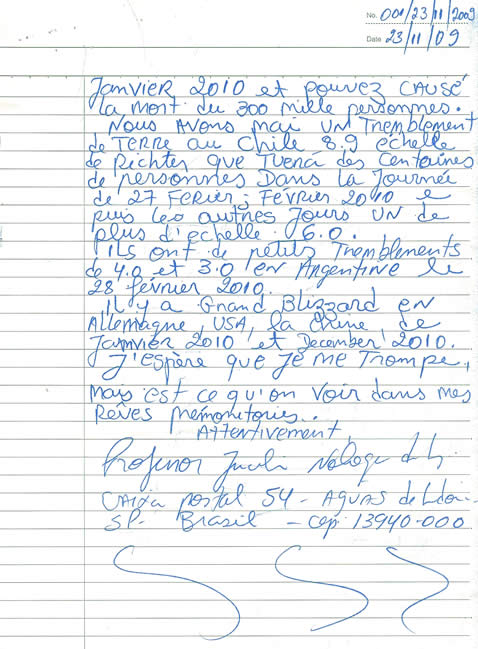 No. 001/23/11/2009
Date 23/11/09
Janvier 2010 et pouvez causé
la mort du 300 mille personnes.
Nous avons mai un Tremblement
de Terre au Chile 8.9 échelle
de Richter que Tuerá des centaines
de personnes Dans la Journée
de 27 Ferier; Février 2010 e
puis les autres Jours un de
plus d'echelle 6.0.
ils ont de petits Tremblements
de 4.0 et 3.0 en Argentine le
28 février 2010.
il y a Grand Blizzard en
Allemagne, USA, la Chine, de
Janvier 2010 et December 2010.
J'espère que Je me Trompe,
mais est ce qu'on voir dans mes
Rêves Prémonitories.
Attentivement,
Professor
Caixa postal 54 - Aguas de Lindoia
SP- Brasil - cep: 13940-000